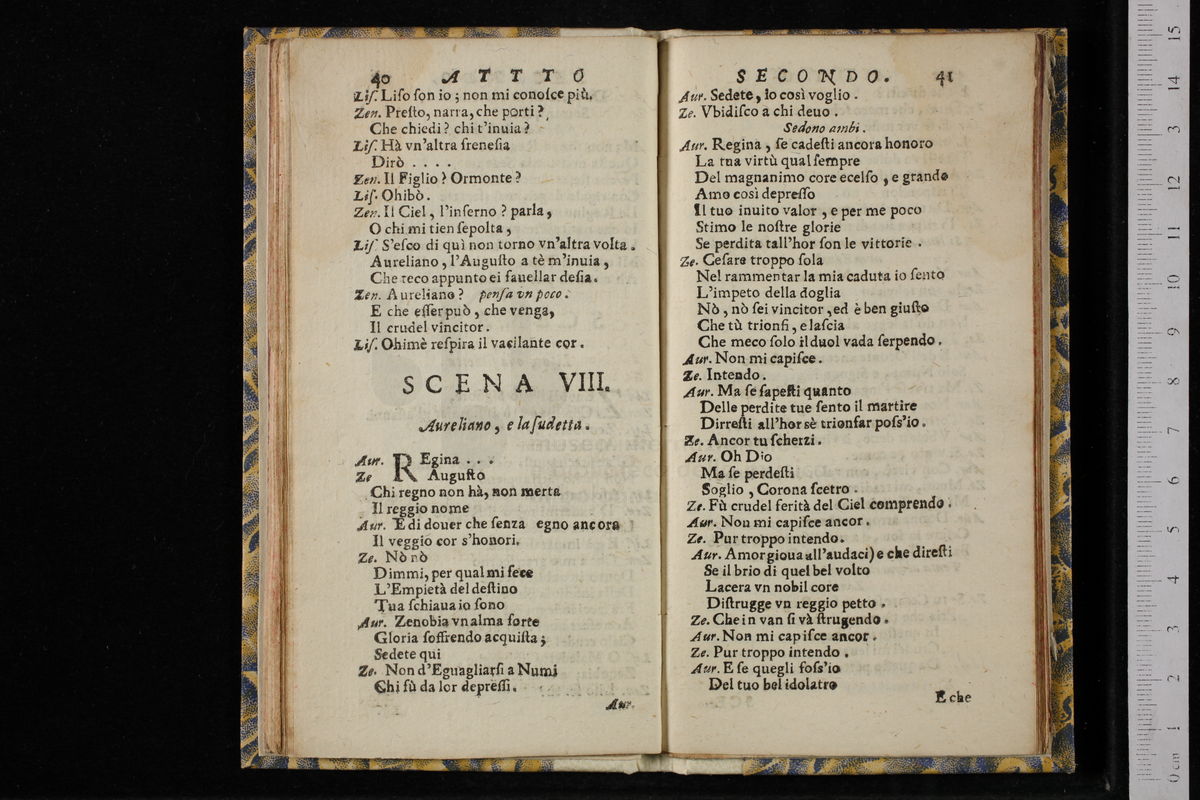 40 ATTTO
Liſ. Liſo ſon io ; non mi conoſce più.
Zen. Preſto, narra, che porti ?
Che chiedi ? chi t'inuia ?
Liſ. Hà vn'altra freneſia
Dirò . . . .
Zen. Il Figlio ? Ormonte ?
Liſ. Ohibò.
Zen. Il Ciel, l'inferno ? parla,
O chi mi tien ſepolta,
Liſ S'eſco di quì non torno vn'altra volta.
Aureliano, l'Auguſto a tè m'inuia,
Che teco appunto ei fauellar deſia.
Zen. Aureliano ? penſa vn poco.
E che eſſer può, che venga,
Il crudel vincitor.
Liſ. Ohimè reſpira il vacilante cor.
SCENA VIII.
Aureliano, e la ſudetta.
Aur. REgina . . .
Ze Auguſto
Chi regno non hà, non merta
Il reggio nome
Aur. E di douer che ſenza egno ancora
Il veggio cor s'honori.
Ze. Nò nò
Dimmi, per qual mi fece
L'Empietà del deſtino
Tua ſchiaua io ſono
Aur. Zenobia vn alma forte
Gloria ſoffrendo acquiſta ;
Sedete qui
Ze. Non d'Eguagliarſi a Numi
Chi fù da lor depreſſi.
Aur.
SECONDO. 41
Aur. Sedete, io così voglio.
Ze. Vbidiſco a chi deuo.
Sedono ambi.
Aur. Regina, ſe cadeſti ancora honoro
La tna virtù qual ſempre
Del magnanimo core ecelſo, e grande
Amo così depreſſo
Il tuo inuito valor, e per me poco
Stimo le noſtre glorie
Se perdita tall'hor ſon le vittorie.
Ze. Ceſare troppo ſola
Nel rammentar la mia caduta io ſento
L'impeto della doglia
Nò, nò ſei vincitor, ed è ben giuſto
Che tù trionfi, e laſcia
Che meco ſolo il duol vada ſerpendo.
Aur. Non mi capiſce.
Ze. Intendo.
Aur. Ma ſe ſapeſti quanto
Delle perdite tue ſento il martire
Dirreſti all'hor sè trionfar poſs'io.
Ze. Ancor tu ſcherzi.
Aur. Oh Dio
Ma ſe perdeſti
Soglio, Corona ſcetro.
Ze. Fù crudel ferità del Ciel comprendo.
Aur. Non mi capiſce ancor.
Ze. Pur troppo intendo.
Aur. Amor gioua all'audaci) e che direſti
Se il brio di quel bel volto
Lacera vn nobil core
Diſtrugge vn reggio petto.
Ze. Che in van ſi và ſtrugendo.
Aur. Non mi capiſce ancor.
Ze. Pur troppo intendo.
Aur. E ſe quegli foſs'io
Del tuo bel idolatro
E che
0 cm 1 2 3 4 5 6 7 8 9 10 11 12 13 14 15